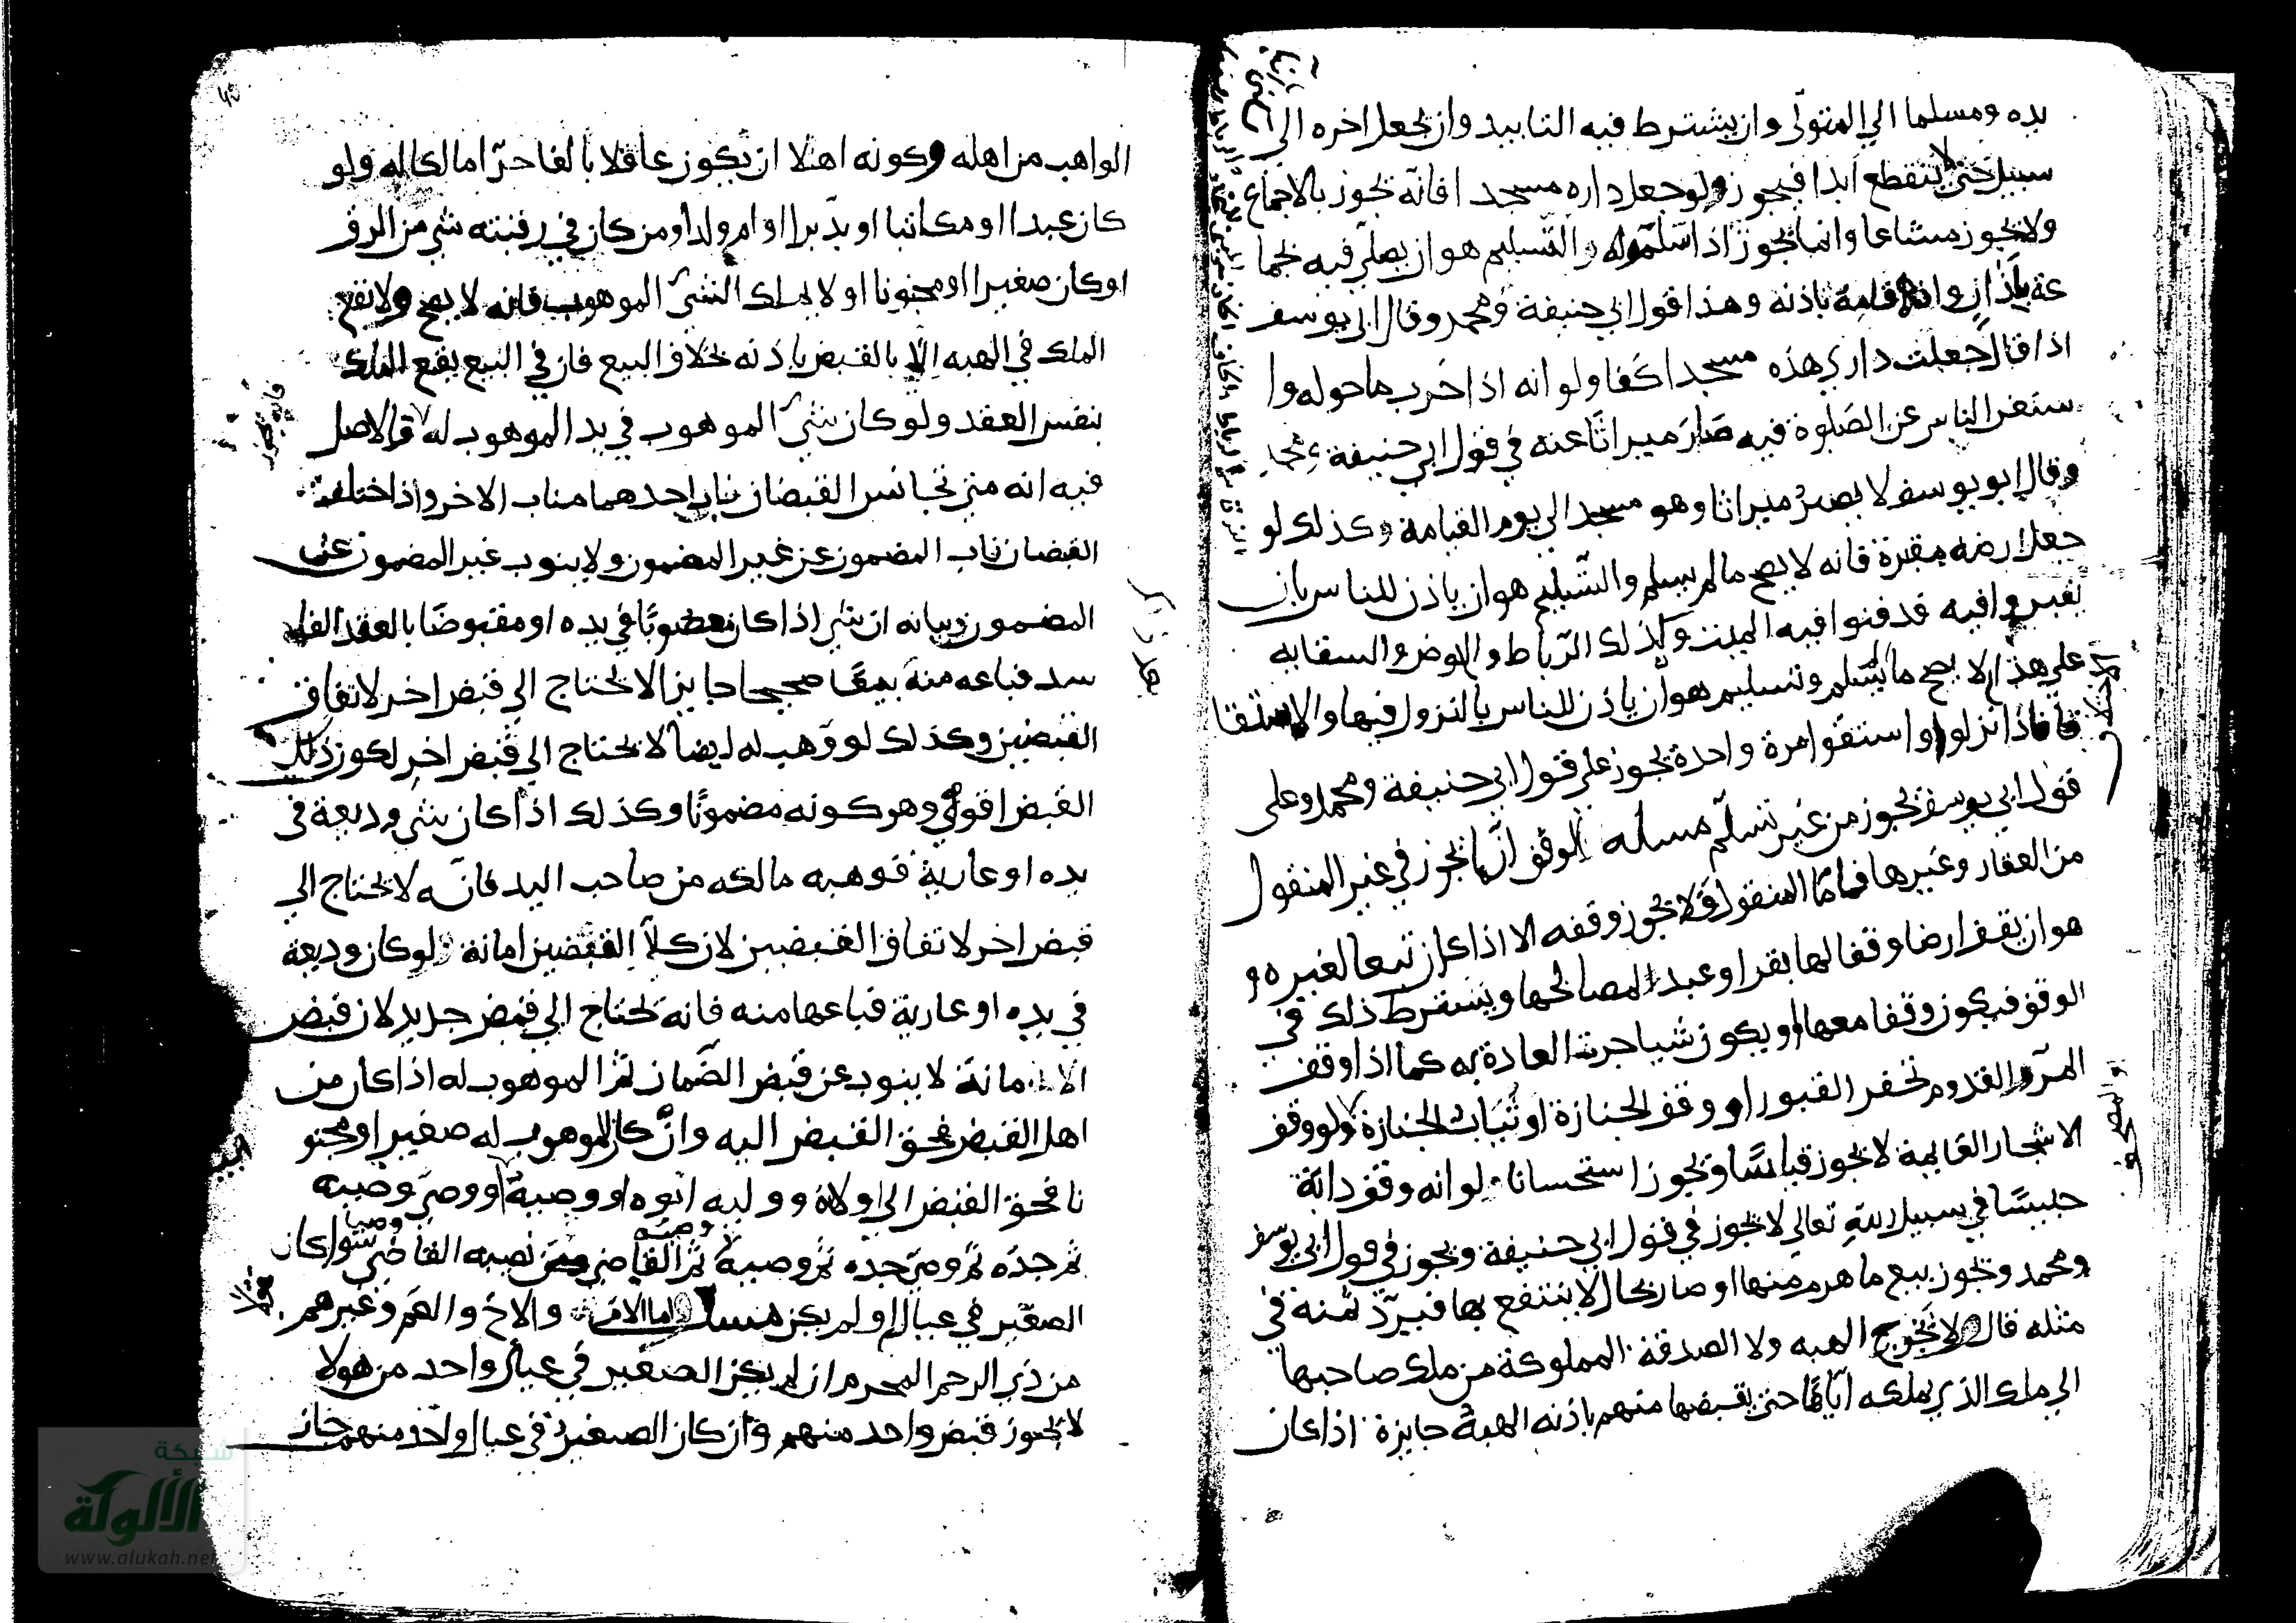 يده ومسلما الي المتولي وان يشترط فيه التابيد وان يجعل اخره الي
سبيل حتى لا ينقطع ابدا فيجوز ولو جعل داره مسجدا فانه يجوز بالاجماع
ولا يجوز مشاعا وانما يجوز اذا سلمه والتسليم هو ان يصلي فيه بجما
عة باذان واقامة باذنه وهذا قول ابي حنيفة ومحمد وقال ابي يوسف
اذا قال جعلت داري هذه مسجدا كفا ولو انه اذا خرب ما حوله وا
ستغن الناس عن الصلوة فيه صار ميراثا عنه في قول ابي حنيفة
وقال ابو يوسف لا يصير ميراثا وهو مسجد الي يوم القيامة وكذلك لو
جعل ارضه مقبرة فانه لا يصح مالم يسلم والتسليم هو ان ياذن للناس بان
يقبروا فيه قد فنوا فيه الميت وكذلك الرباط والحوض والسقايه
على هذا لا يصح ما لم يسلم وتسليم هو ان ياذن للناس بالنزول فيها والاستقا
فاذا نزلوا واستقوا مرة واحدة يجوز على قول ابي حنيفة ومحمد وعلى
قول ابي يوسف يجوز من غير تسلم مسله الوقف انما يجوز في غير المنقول
من العقار وغيرها فاما المنقول فلا يجوز وقفه الا اذا كان تبعا لغيره و
هو ان يقف ارضا وقفا لها بقر او عبد المصالحها ويشترط ذلك في
الوقف فيكون وقفا معها او يكون شيا جرت العادة به كما اذا وقف
المر والقدوم تحفر القبور او وقف الجنازة او ثياب الجنازة ولو وقف
الاشجار القايمة لا يجوز قياسا ويجوز استحسانا ولو انه وقف دابة
حبيسا في سبيل الله تعالي لا يجوز في قول ابي حنيفة ويجوز في قول ابي يوسف
ومحمد ويجوز بيع ما هرم منها او صار بحال لا ينتفع بها فيرد ثمنه في
مثله قال لا تخرج الهبه ولا الصدقة المملوكة من ملك صاحبها
الي ملك الذي يملكه اياها حتى يقبضها منهم باذنه الهبة جايزة اذا كان
والمصحف
الواهب من اهله وكونه اهلا ان يكون عاقلا بالغا حرا مالكا له ولو
كان عبدا او مكاتبا او مدبرا او ام ولد او من كان في رقبته شي من الرق
او كان صغيرا او مجنونا او لا يملك الشئ الموهوب فانه لا يصح ولا تقع
الملك في الهبه الا بالقبض باذنه بخلاف البيع فان في البيع يقع الملك
بنفس العقد ولو كان شئ الموهوب في يد الموهوب له والاصل
فيه انه متى تجانس القبضان ناب احدهما مناب الاخر واذا اختلف
القبضان ناب المضمون عن غير المضمون ولا ينوب غير المضمون عن
المضمون وبيانه ان شي اذا كان مغصوبا في يده او مقبوضا بالعقد الفا
سد فباعه منه بيعا صحيحا جايزا لا يحتاج الي قبض اخر لاتفاق
القبضين وكذلك لو وهب له ايضا لا يحتاج الي قبض اخر لكون ذلك
القبض اقوي وهو كونه مضمونا وكذلك اذا كان شي وديعة في
يده او عارية فوهبه مالكه من صاحب اليد فانه لا يحتاج الي
قبض اخر لاتفاق القبضين لان كلا القبضين امانة ولو كان وديعة
في يده او عارية فباعها منه فانه يحتاج الي قبض جديد لان قبض
الامانة لا ينوب عن قبض الضمان ثم الموهوب له اذا كان من
اهل القبض فحق القبض اليه وان كان الموهوب له صغيرا او مجنو
نا فحق القبض الي اولاه ووليه ابوه او وصيه او وصي وصيه
ثم جده ثم وصي جده ثم وصيه ثم القاضي ومن نصبه القاضي سوا كان
الصغير في عيال او لم يكن اما الام والاخ والعم وغيرهم
من ذي الرحم المحرم ان لم يكن الصغير في عيال واحد من هولا
لا يجوز قبض واحد منهم وان كان الصغير في عيال واحد منهم جاز
شبكة
الألوكة
www.alukah.net